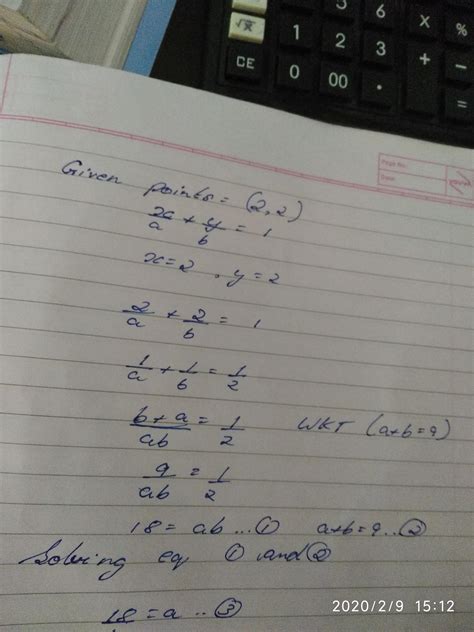 3 6 X %
√x 1 2 3 + -
CE 0 00 .
Page No.:
Date:
Given points = (2,2)
x/a + y/b = 1
x=2 , y=2
2/a + 2/b = 1
1/a + 1/b = 1/2
b+a/ab = 1/2 WKT (a+b=9)
9/ab = 1/2
18 = ab ... ① a+b=9 .. ②
Solving eq ① and ②
18 = a .. ③
2020/2/9 15:12